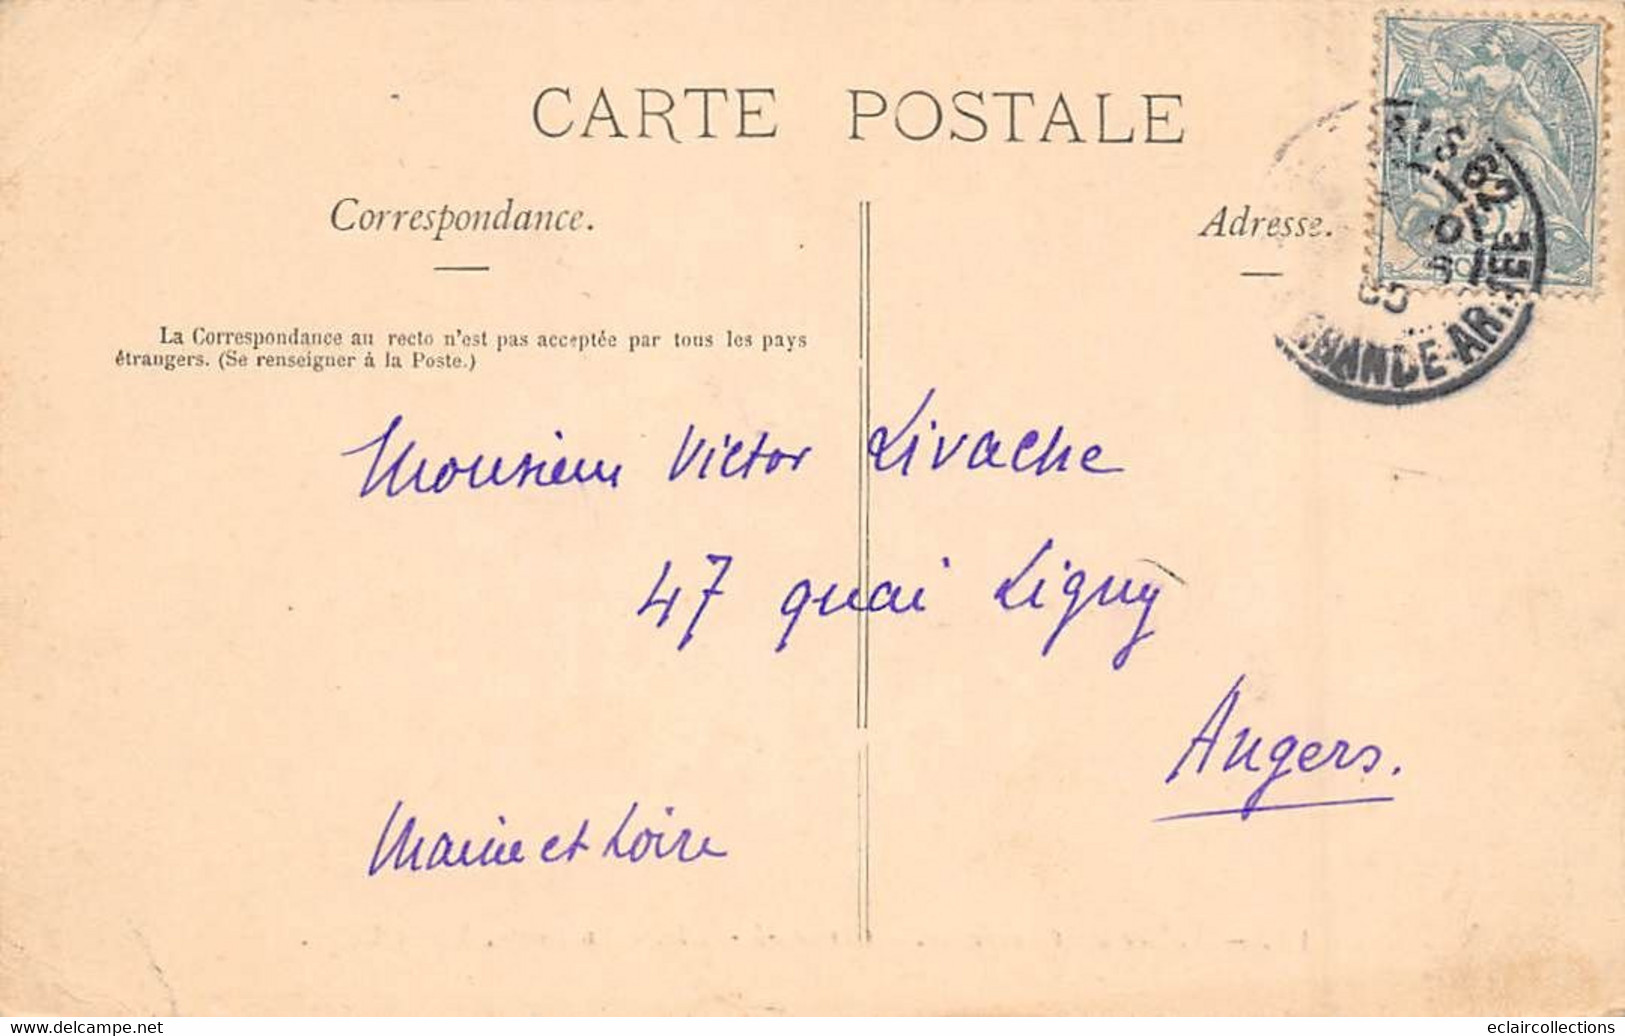 CARTE POSTALE
Correspondance.
Adresse.
La Correspondance au recto n'est pas acceptée par tous les pays
étrangers. (Se renseigner à la Poste.)
GRANDE-ARMEE
Monsieur Victor Livache
47 quai Ligny
Angers.
Maine et Loire
www.delcampe.net
eclaircollections